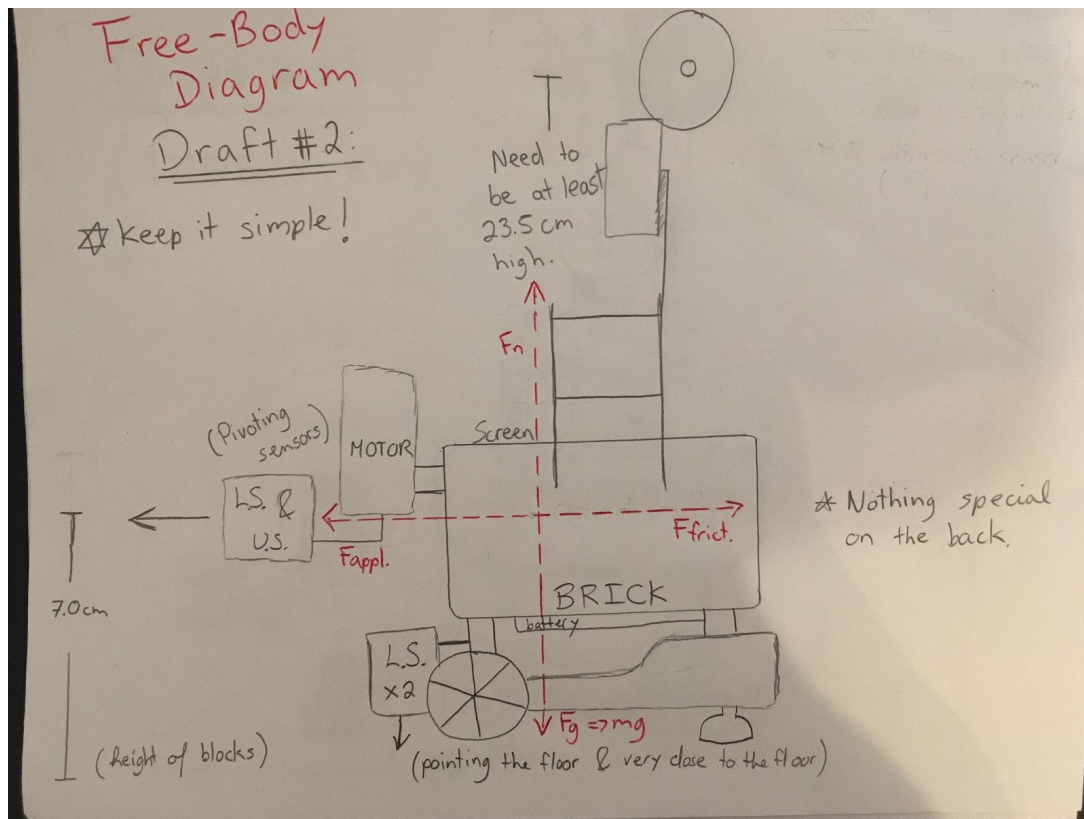 Free-Body
Diagram
Draft #2:
☆ Keep it simple!
Need to
be at least
23.5 cm
high.
Fn
(Pivoting
sensors)
MOTOR
Screen
L.S. &
U.S.
Fappl.
Ffrict.
* Nothing special
on the back.
7.0cm
BRICK
battery
L.S.
x2
Fg => mg
(height of blocks)
(pointing the floor & very close to the floor)